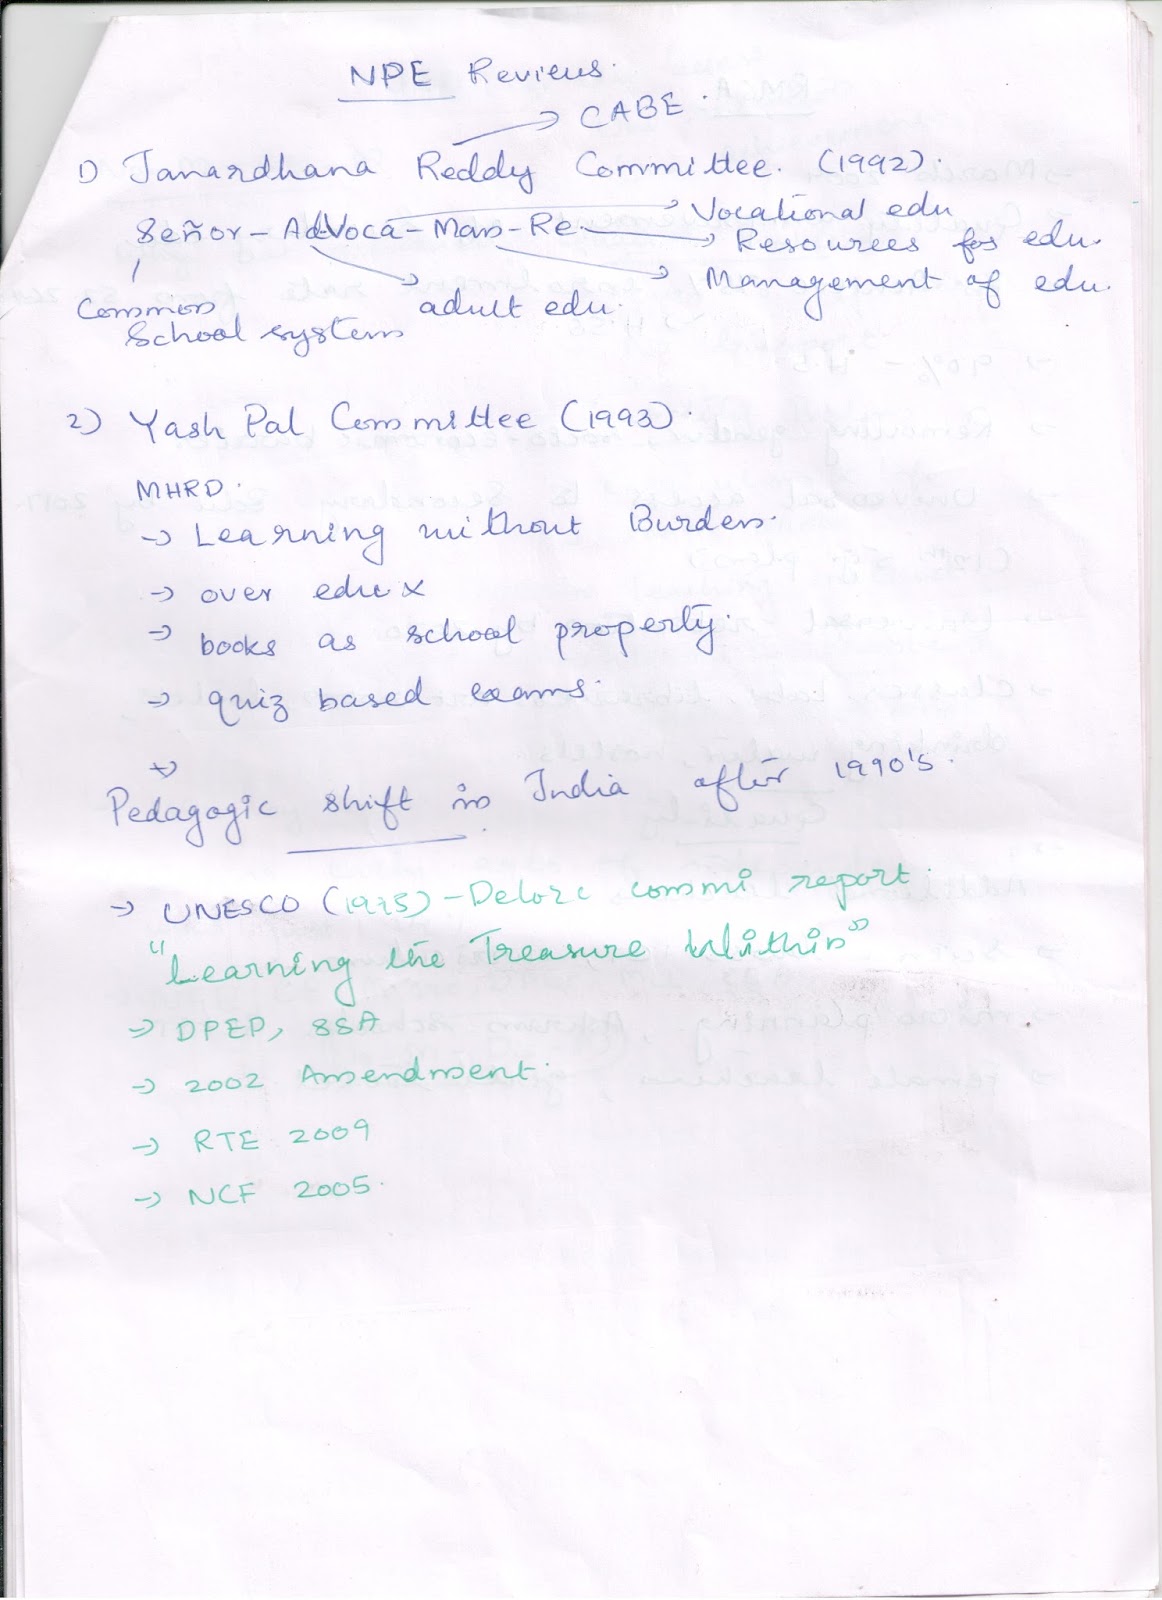 NPE Reviews.
→ CABE.
1) Janardhana Reddy Committee. (1992).
Señor - AdVoca - Man - Re
→ Vocational edu
→ Resources for edu.
→ Management of edu.
→ adult edu.
Common
School system
2) Yash Pal Committee (1993).
MHRD.
→ Learning without Burden.
→ over edu x
→ books as school property.
→ quiz based exams.
→
Pedagogic shift in India after 1990's.
→ UNESCO (1995) - Delorc commi report.
"Learning the Treasure Within"
→ DPEP, SSA
→ 2002 Amendment.
→ RTE 2009
→ NCF 2005.